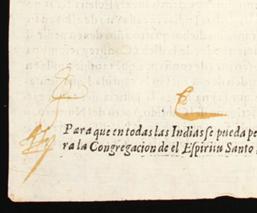 Para que en todas las Indias se pueda pe
ra la Congregacion de el Espiritu Santo